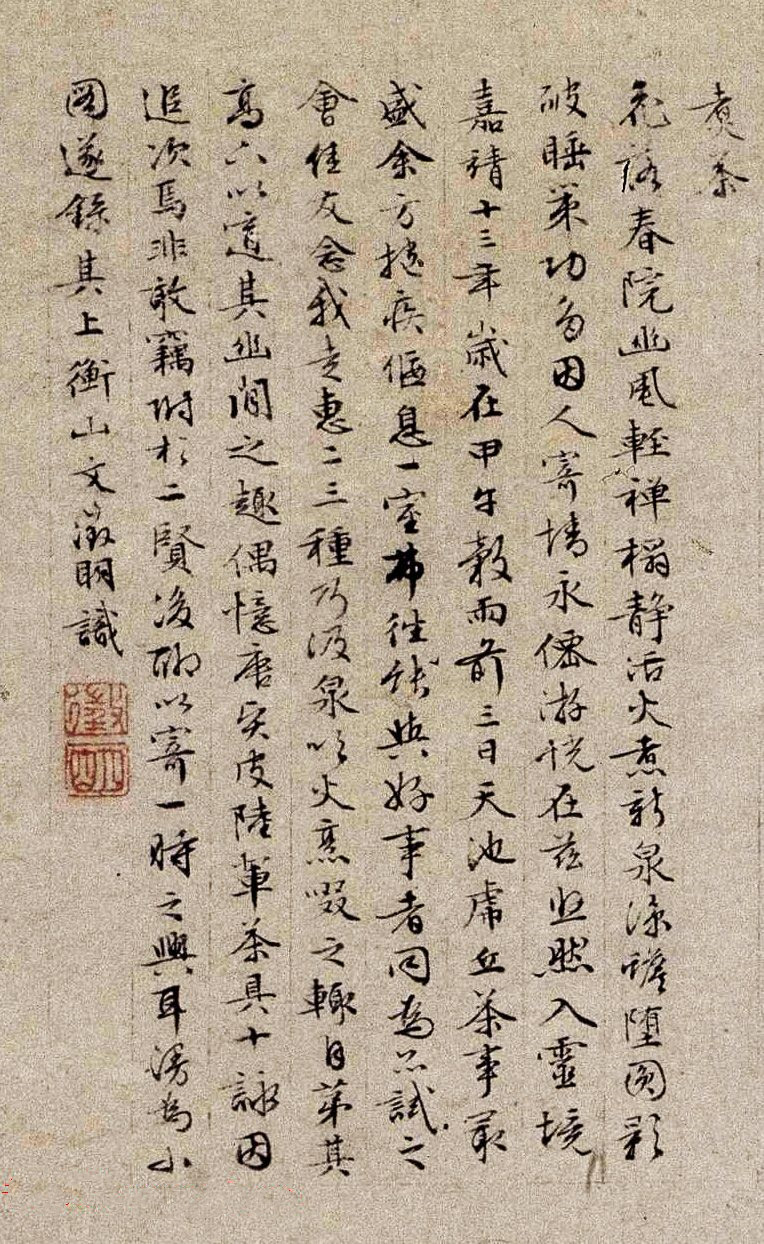 煮茶
花落春院幽風輕禪榻静活火煮新泉涼蟾墮圓影
破睡策功多因人寄情永僊游恍在兹悠然入靈境
嘉靖十三年歲在甲午穀雨前三日天池虎丘茶事最
盛余方抱疾偃息一室弗往能與好事者同為品試之
會佳友念我走惠二三種乃汲泉吹火烹啜之輒自第其
高下以適其幽閒之趣偶憶唐賢皮陸輩茶具十詠因
追次焉非敢竊附於二賢後聊以寄一時之興耳漫為小
圖遂錄其上衡山文徵明識
徵明